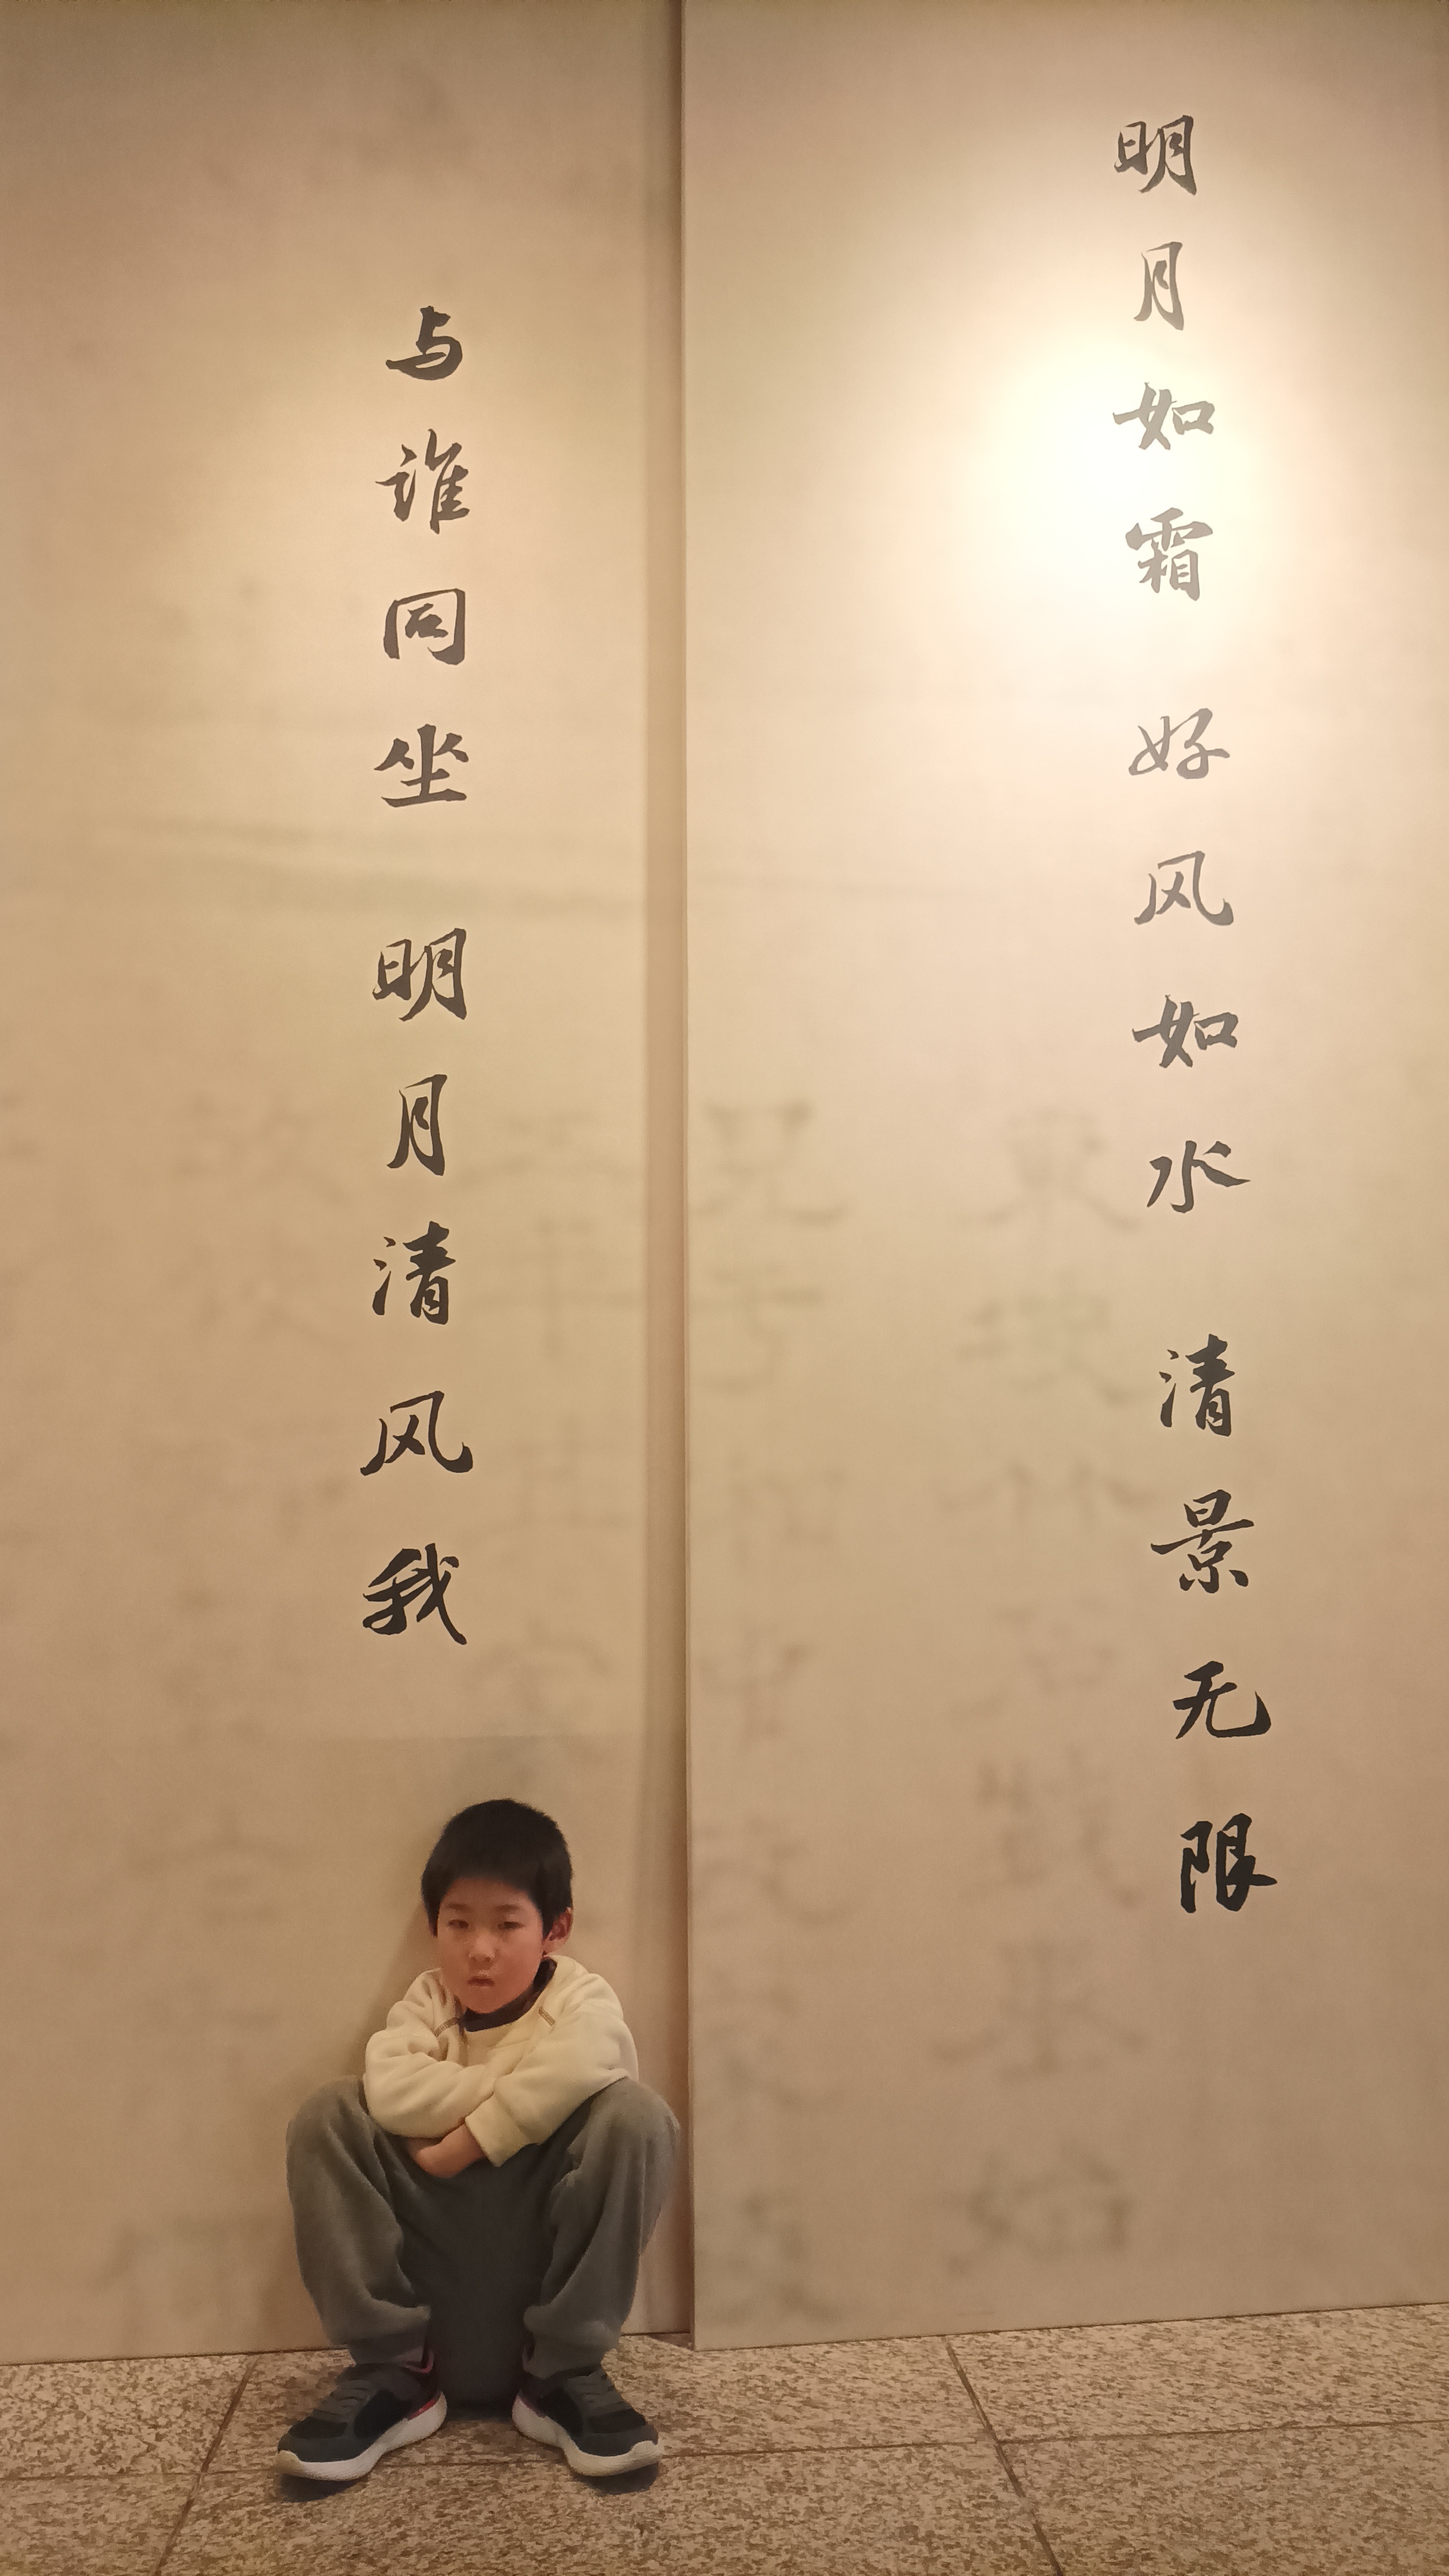 明月如霜 好风如水 清景无限
与谁同坐 明月清风我